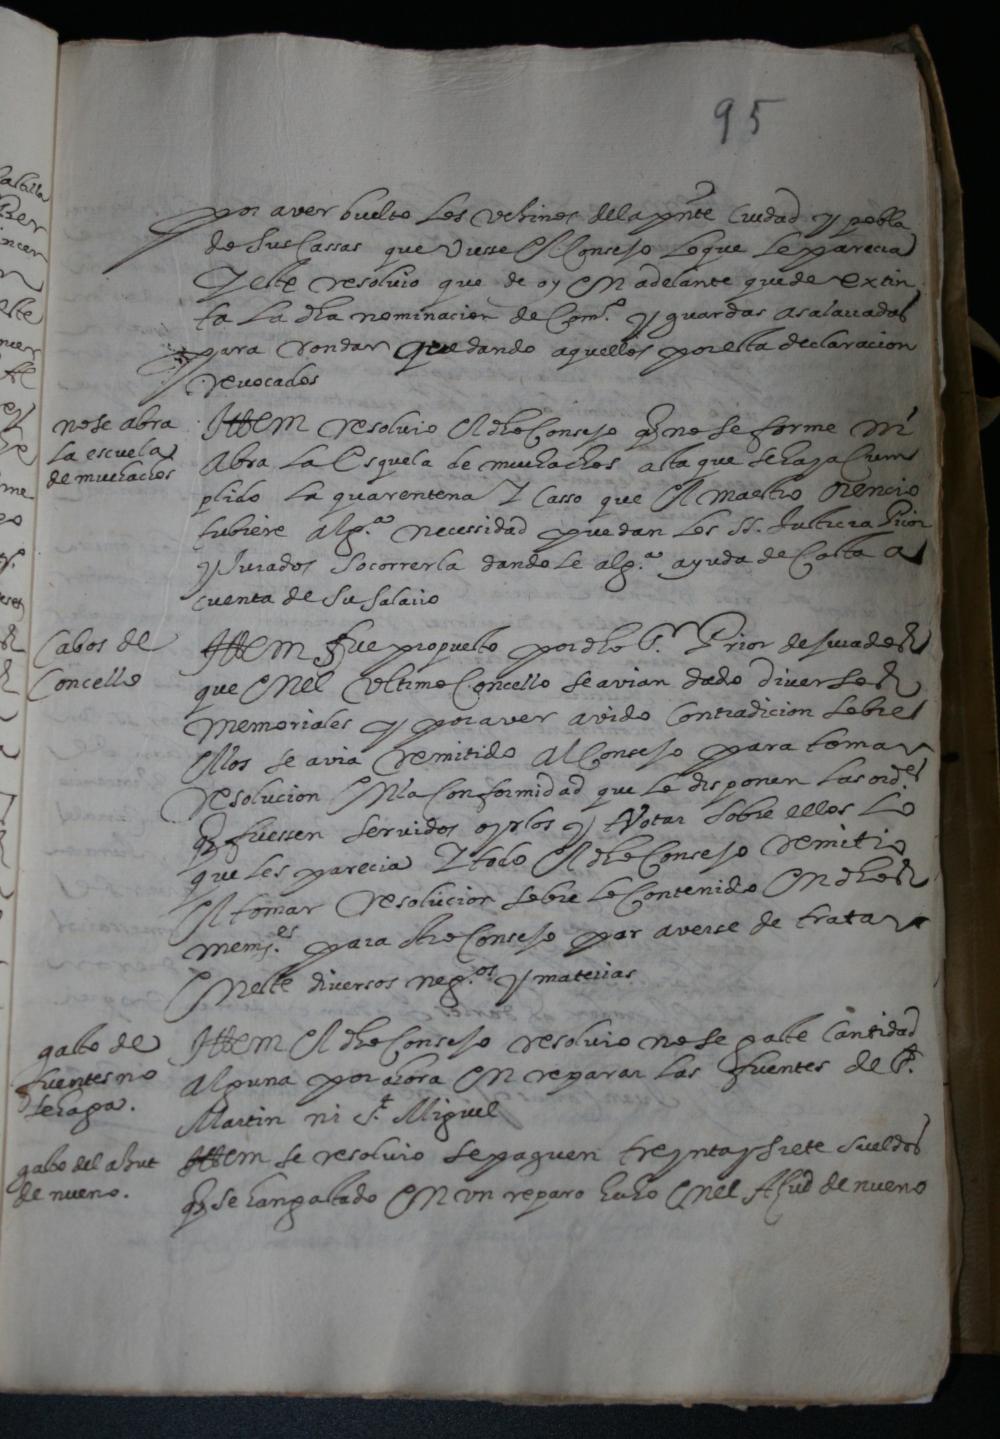 95
por aver buelto los vehinos dela pnte Ciudad y pobla
do sus Cassas que viesse el Consejo lo que le parecia
Y este resolvio que de oy en adelante quede extin
ta la dha nominacion de Com.s y guardas asalariadas
para rondar quedando aquellos por esta declaracion
revocados
no se abra
la escuela
de muchachos
Ittem resolvio el dho Consejo q no se forme ni
Abra la Esquela de muchachos asta que se haya Cum
plido la quarentena Y Casso que el maestro Orencio
tubiere alg.a necessidad puedan los SS. Justicia Prior
y Jurados Socorrerla dandole alg.a ayuda de Costa a
cuenta de su salario
Cabos de
Concello
Ittem fue propuesto por dho S.r Prior de Jurados
que enel Ultimo Concello se avian dado diversos
Memoriales y por aver avido Contradicion sobre
ellos se avia remitido al Consejo para tomar
resolucion enla Conformidad que le disponen las ord.es
q fuessen servidos oyrlos y Votar sobre ellos lo
que les parecia Y todo el dho Consejo remitio
el tomar resolucion sobre lo Contenido en dhos
mem.es para otro Consejo par averse de tratar
eneste diversos neg.os y materias
gasto de
fuentes no
se haga.
Ittem el dho Consejo resolvio no se gaste Cantidad
alguna por ahora en reparar las fuentes de S.t
Martin ni S.t Miguel
gasto del azut
de nueno.
Ittem se resolvio se paguen treynta y siete sueldos
q se han gastado en un reparo hecho enel Açud de nueno